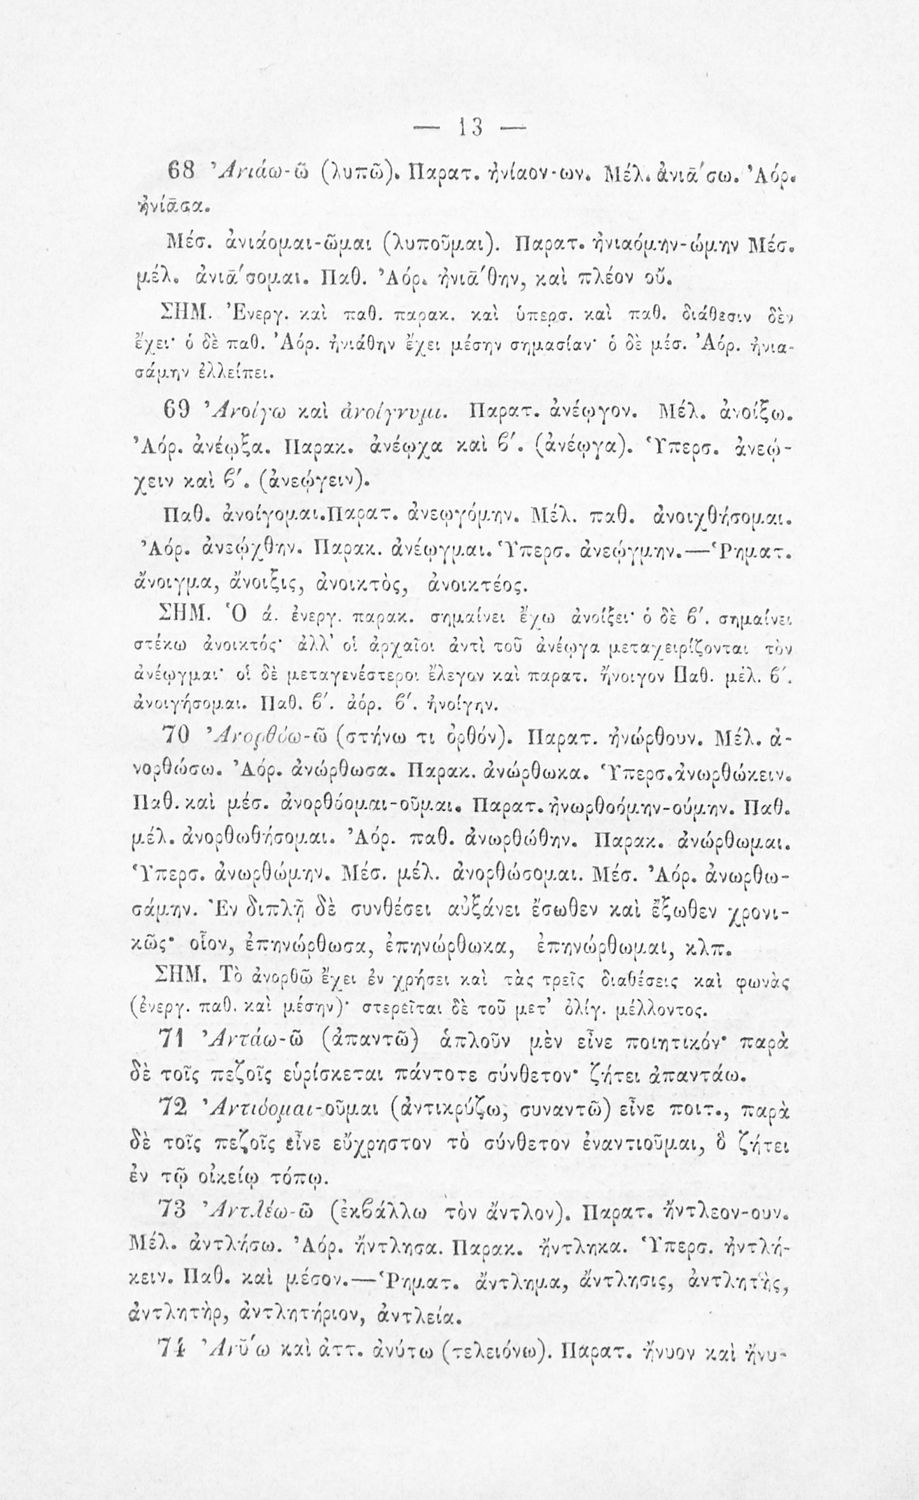 — 13 —
68 Ἀνιάω-ῶ (λυπῶ). Παρατ. ἠνίαον-ων. Μέλ. ἀνιᾱ́σω. Ἀόρ.
ἠνίᾱσα.
Μέσ. ἀνιάομαι-ῶμαι (λυποῦμαι). Παρατ. ἠνιαόμην-ώμην Μέσ.
μέλ. ἀνιᾱ́σομαι. Παθ. Ἀόρ. ἠνιᾱ́θην, καὶ πλέον οὔ.
ΣΗΜ. Ἐνεργ. καὶ παθ. παρακ. καὶ ὑπερσ. καὶ παθ. διάθεσιν δὲν
ἔχει· ὁ δὲ παθ. Ἀόρ. ἠνιάθην ἔχει μέσην σημασίαν· ὁ δὲ μέσ. Ἀόρ. ἠνια-
σάμην ἐλλείπει.
69 Ἀνοίγω καὶ ἀνοίγνυμι. Παρατ. ἀνέῳγον. Μέλ. ἀνοίξω.
Ἀόρ. ἀνέῳξα. Παρακ. ἀνέῳχα καὶ ϐ′. (ἀνέῳγα). Ὑπερσ. ἀνεῴ-
χειν καὶ ϐ′. (ἀνεῴγειν).
Παθ. ἀνοίγομαι. Παρατ. ἀνεῳγόμην. Μέλ. παθ. ἀνοιχθήσομαι.
Ἀόρ. ἀνεῴχθην. Παρακ. ἀνέῳγμαι. Ὑπερσ. ἀνεῴγμην.—Ῥηματ.
ἄνοιγμα, ἄνοιξις, ἀνοικτὸς, ἀνοικτέος.
ΣΗΜ. Ὁ ά. ἐνεργ. παρακ. σημαίνει ἔχω ἀνοίξει· ὁ δὲ ϐ′. σημαίνει
στέκω ἀνοικτός· ἀλλ' οἱ ἀρχαῖοι ἀντὶ τοῦ ἀνέῳγα μεταχειρίζονται τὸν
ἀνέῳγμαι· οἱ δὲ μεταγενέστεροι ἔλεγον καὶ παρατ. ἤνοιγον Παθ. μέλ. ϐ′.
ἀνοιγήσομαι. Παθ. ϐ′. ἀόρ. ϐ′. ἠνοίγην.
70 Ἀνορθόω-ῶ (στήνω τι ὀρθόν). Παρατ. ἠνώρθουν. Μέλ. ἀ-
νορθώσω. Ἀόρ. ἀνώρθωσα. Παρακ. ἀνώρθωκα. Ὑπερσ. ἀνωρθώκειν.
Παθ. καὶ μέσ. ἀνορθόομαι-οῦμαι. Παρατ. ἠνωρθοόμην-ούμην. Παθ.
μέλ. ἀνορθωθήσομαι. Ἀόρ. παθ. ἀνωρθώθην. Παρακ. ἀνώρθωμαι.
Ὑπερσ. ἀνωρθώμην. Μέσ. μέλ. ἀνορθώσομαι. Μέσ. Ἀόρ. ἀνωρθω-
σάμην. Ἐν διπλῇ δὲ συνθέσει αὐξάνει ἔσωθεν καὶ ἔξωθεν χρονι-
κῶς· οἷον, ἐπηνώρθωσα, ἐπηνώρθωκα, ἐπηνώρθωμαι, κλπ.
ΣΗΜ. Τὸ ἀνορθῶ ἔχει ἐν χρήσει καὶ τὰς τρεῖς διαθέσεις καὶ φωνὰς
(ἐνεργ. παθ. καὶ μέσην)· στερεῖται δὲ τοῦ μετ' ὀλίγ. μέλλοντος.
71 Ἀντάω-ῶ (ἀπαντῶ) ἁπλοῦν μὲν εἶνε ποιητικόν· παρὰ
δὲ τοῖς πεζοῖς εὑρίσκεται πάντοτε σύνθετον· ζήτει ἀπαντάω.
72 Ἀντιόομαι-οῦμαι (ἀντικρύζω, συναντῶ) εἶνε ποιτ., παρὰ
δὲ τοῖς πεζοῖς εἶνε εὔχρηστον τὸ σύνθετον ἐναντιοῦμαι, ὃ ζήτει
ἐν τῷ οἰκείῳ τόπῳ.
73 Ἀντλέω-ῶ (ἐκϐάλλω τὸν ἄντλον). Παρατ. ἤντλεον-ουν.
Μέλ. ἀντλήσω. Ἀόρ. ἤντλησα. Παρακ. ἤντληκα. Ὑπερσ. ἠντλή-
κειν. Παθ. καὶ μέσον.—Ῥηματ. ἄντλημα, ἄντλησις, ἀντλητὴς,
ἀντλητὴρ, ἀντλητήριον, ἀντλεία.
74 Ἀνῡ́ω καὶ ἀττ. ἀνύτω (τελειόνω). Παρατ. ἤνυον καὶ ἤνυ-